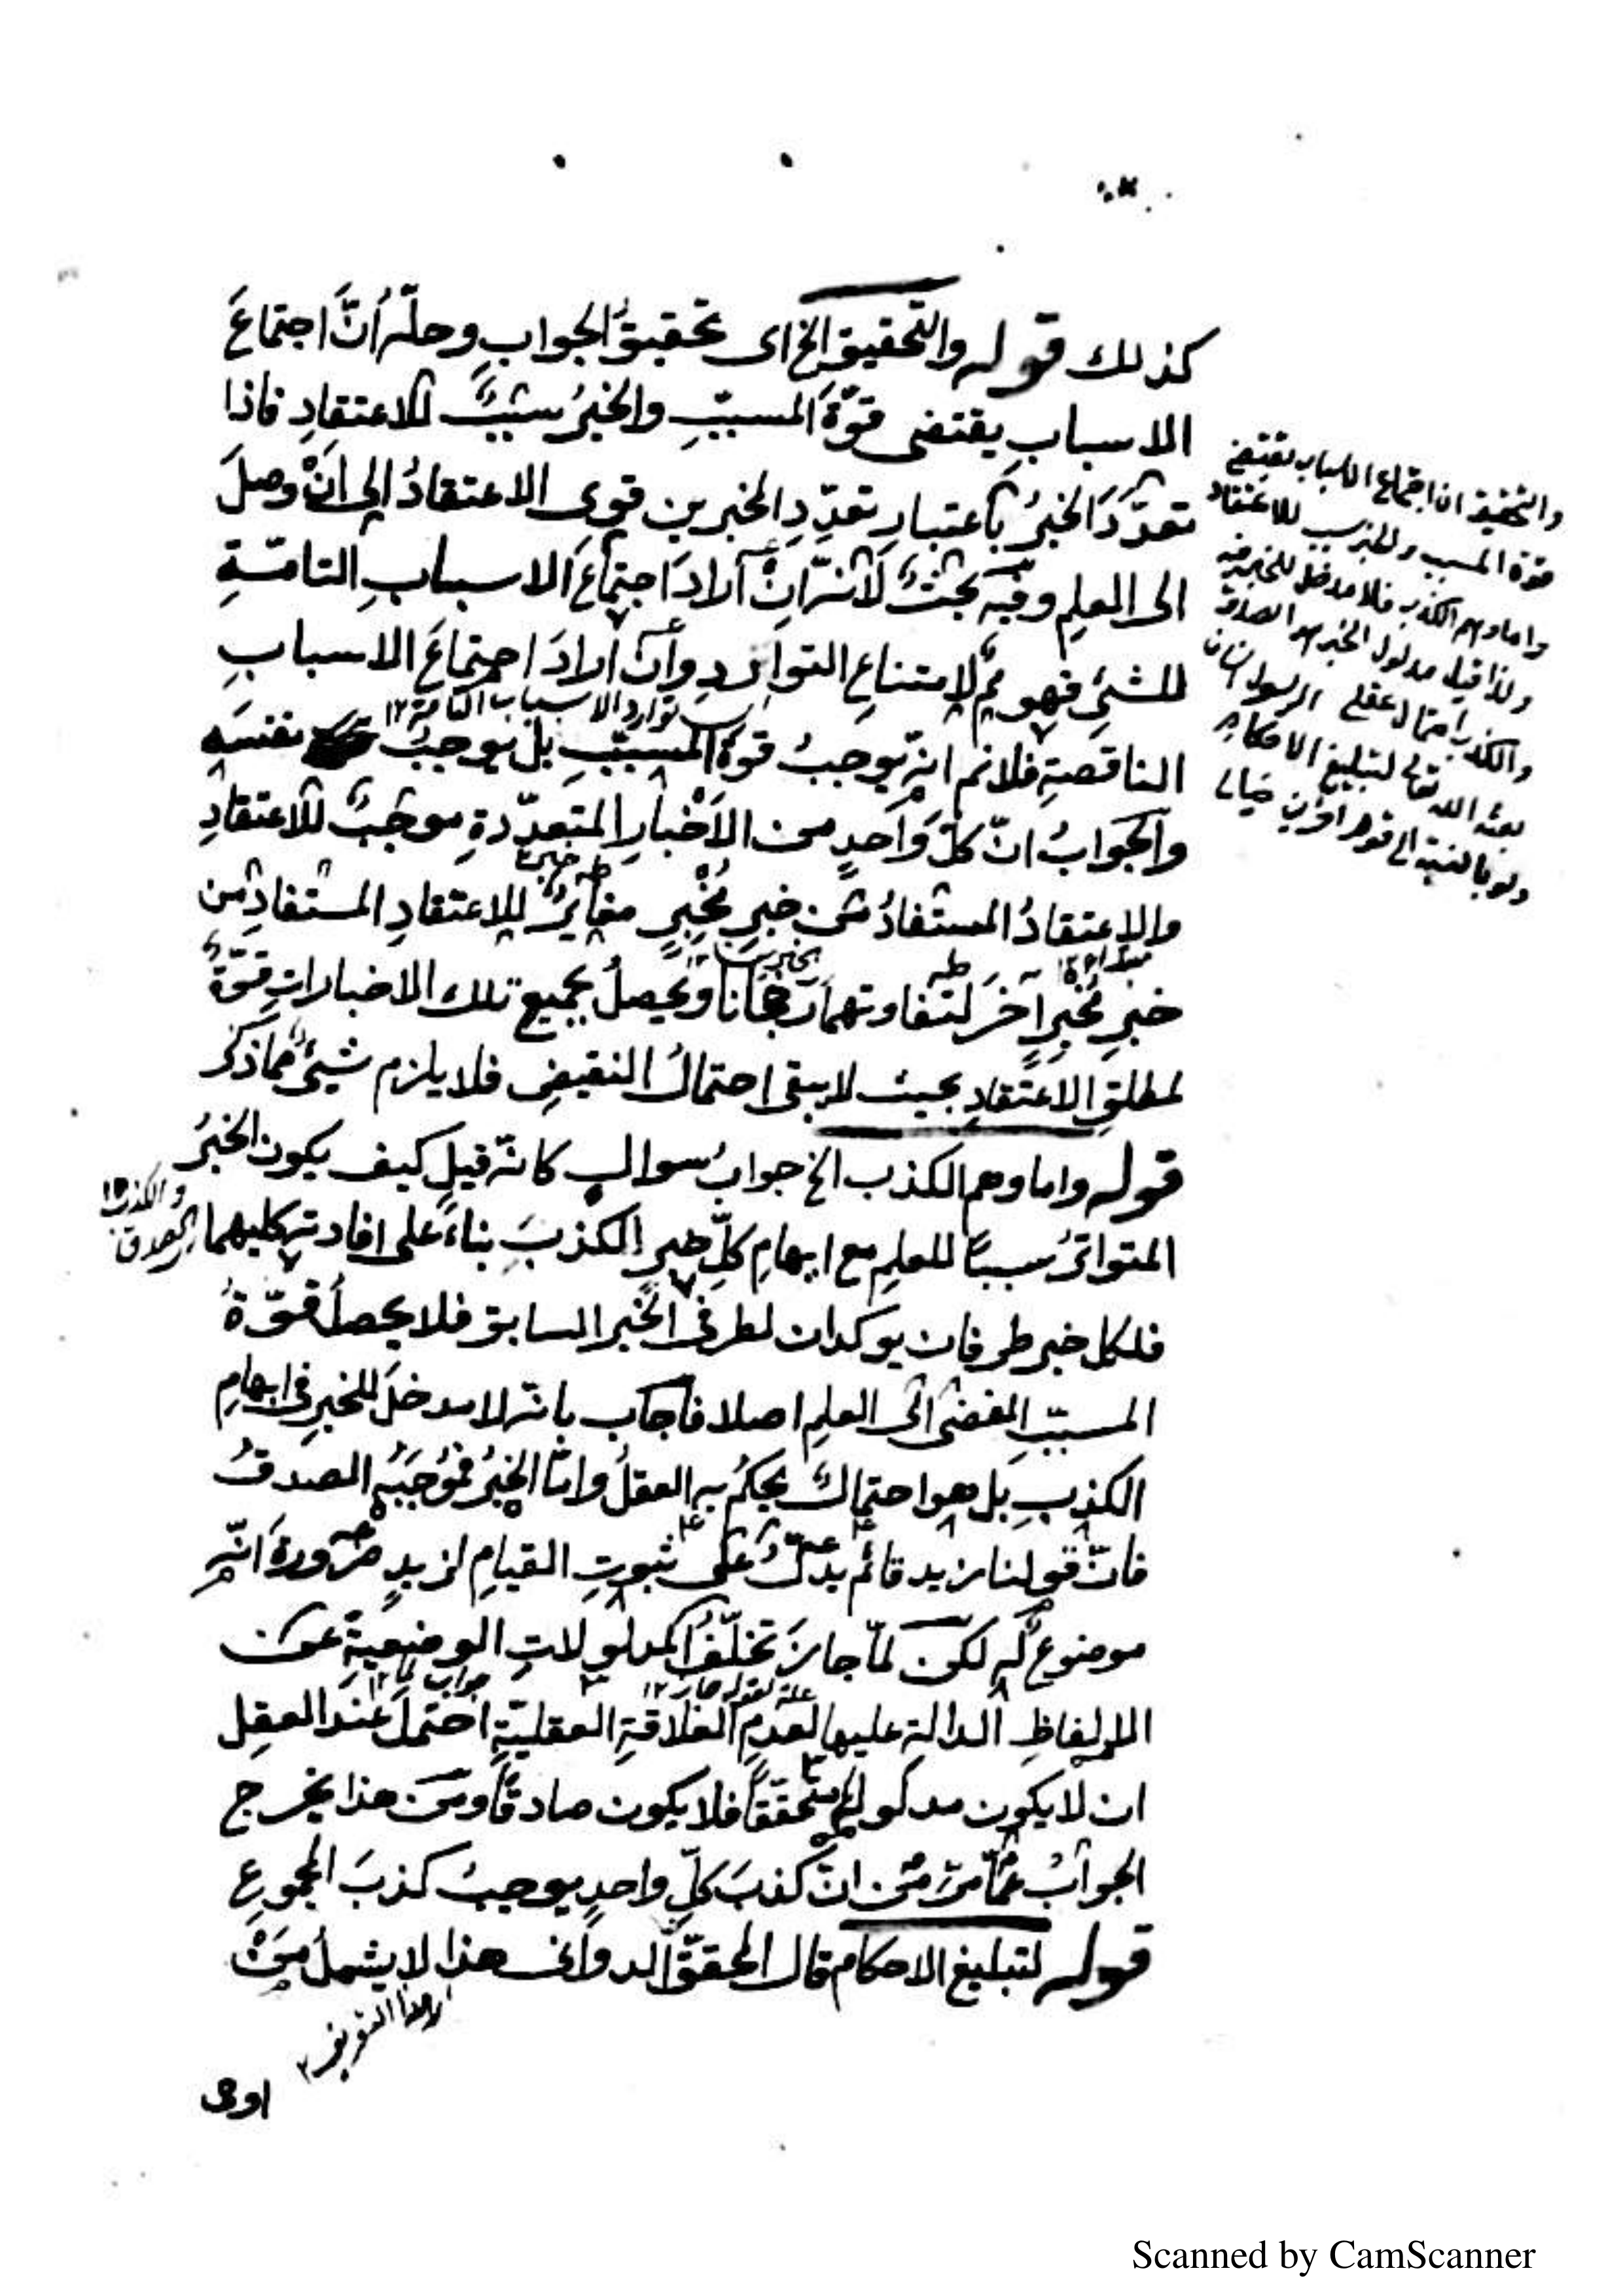 كذلك قوله والتحقيق الخ اى تحقيقُ الجوابِ وحلّه أنَّ اجتماعَ
الاسبابِ يقتضى قوّةَ المسببِ والخبرُ سببٌ للاعتقادِ فاذا
تعدّدَ الخبرُ باعتبارِ تعدّدِ المخبرين قوى الاعتقادُ الى انْ وصلَ
الى العلمِ وفيه بحثٌ لانّه انْ ارادَ اجتماعَ الاسبابِ التامّةِ
للشئِ فهو مم لامتناعِ التواردِ وأن ارادَ اجتماعَ الاسبابِ
توارد الاسباب التامة ١٢
الناقصةِ فلانم انه يوجبُ قوةَ المسببِ بل يوجبُ نفسَه
والجوابُ انّ كلّ واحدٍ من الأخبارِ المتعدّدةِ موجبٌ للاعتقادِ
والاعتقادُ المستفادُ من خبرِ مُخْبِرٍ مغايرٌ للاعتقادِ المستفادِ من
خبرِ مُخبِرٍ آخرَ لتفاوتهما رجحانا ويحصلُ بجميع تلك الاخباراتِ قوّةٌ
لمطلقِ الاعتقادِ بحيث لا يبقى احتمالُ النقيضِ فلا يلزم شيئٌ مما ذكر
قوله واما وهم الكذب الخ جوابُ سوالٍ كانّه قيل كيف يكون الخبرُ
المتواترُ سببًا للعلمِ مع ايهامِ كلِّ خبرٍ الكذبَ بناءً على افادته كليهما
الصدق والكذب ١٢
فلكل خبر طرفان يوكدان لطرفى الخبر السابق فلا يحصلُ قوّةُ
المسببِ المفضى الى العلمِ اصلا فاجاب بانّه لا مدخلَ للخبرِ فى ايهامِ
الكذبِ بل هو احتمالٌ يحكمُ به العقلُ وامّا الخبرُ فموجَبُه الصدقُ
فانّ قولنا زيد قائم يدلُّ على ثبوتِ القيامِ لزيدٍ ضرورةَ انّه
موضوعٌ له لكن لمّا جازَ تخلّفُ المدلولاتِ الوضعيةِ عن
علة لقوله جاز ١٢ جواب لما ١٢
الالفاظِ الدالةِ عليها لعدمِ العلاقةِ العقليّةِ احتملَ عند العقلِ
ان لا يكون مدلولُه متحققًا فلا يكون صادقًا ومن هذا يخرج
الجوابُ عمّا مرّ من انّ كذبَ كلِّ واحدٍ يوجبُ كذبَ المجموعِ
قوله لتبليغ الاحكام قال المحقق الدوانى هذا لا يشملُ مَنْ
اى هذا التعريف ١٢
اوحى
والتحقيق ان اجتماع الاسباب يقتضى
قوة المسبب والخبر سبب للاعتقاد
واما وهم الكذب فلا مدخل للخبر فيه
ولذا قيل مدلول الخبر هو الصدق
والكذب احتمال عقلى الرسول انسان
بعثه الله تعالى لتبليغ الاحكام
ولو بالنسبة الى قوم اخرين خيالى
Scanned by CamScanner